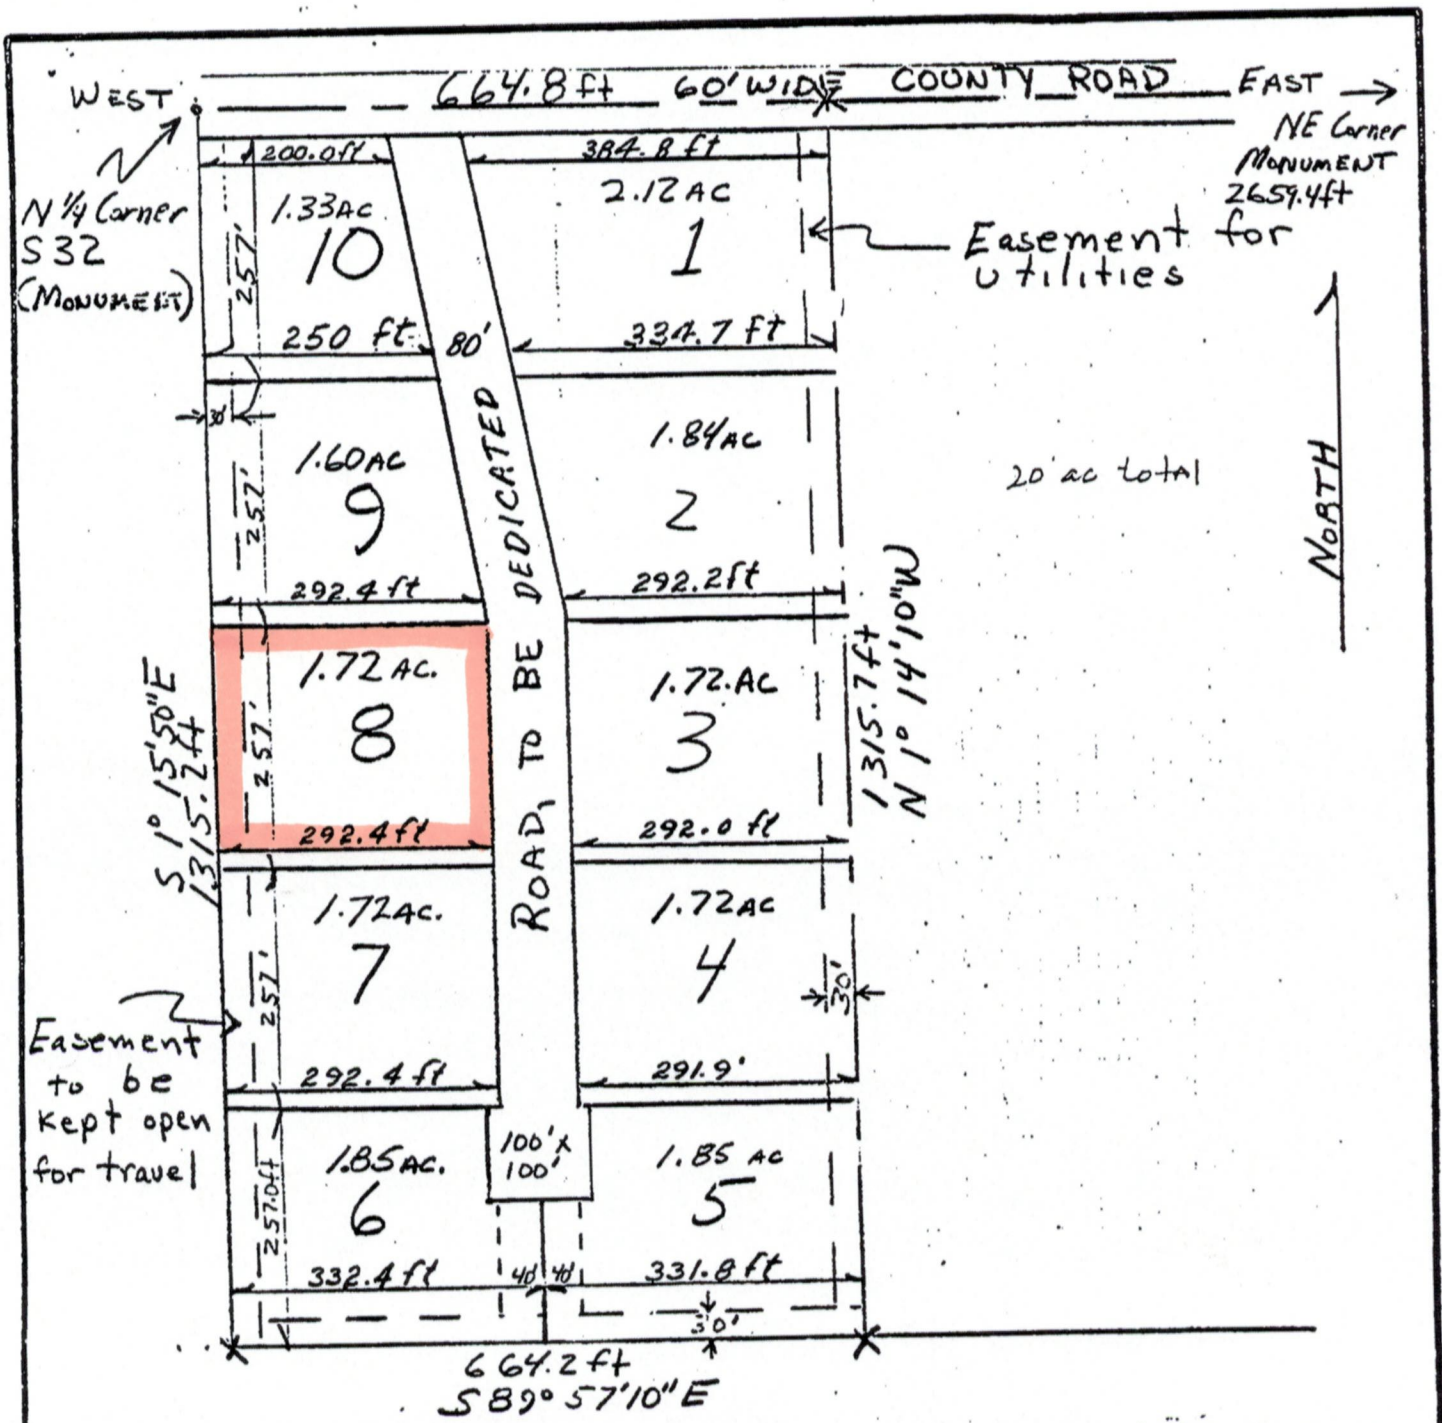 WEST 664.8 ft 60' WIDE COUNTY ROAD EAST
NE Corner
MONUMENT
2659.4ft
N 1/4 Corner
S 32
(MONUMENT)
200.0ft
384.8 ft
1.33AC
10
257'
250 ft
80'
2.12 AC
1
334.7 ft
Easement for
utilities
NORTH
20 ac total
30'
1.60AC
9
257'
292.4 ft
1.84AC
2
292.2ft
ROAD, TO BE DEDICATED
S 1° 15'50"E
1315.2ft
1.72 AC.
8
257'
292.4 ft
1.72.AC
3
292.0 ft
1315.7 ft
N 1° 14'10"W
1.72AC.
7
257'
292.4 ft
1.72AC
4
30'
291.9'
Easement
to be
kept open
for travel
1.85AC.
6
257.0ft
332.4 ft
100' x
100'
40' 40'
1.85 AC
5
331.8 ft
30'
664.2 ft
S 89° 57'10" E